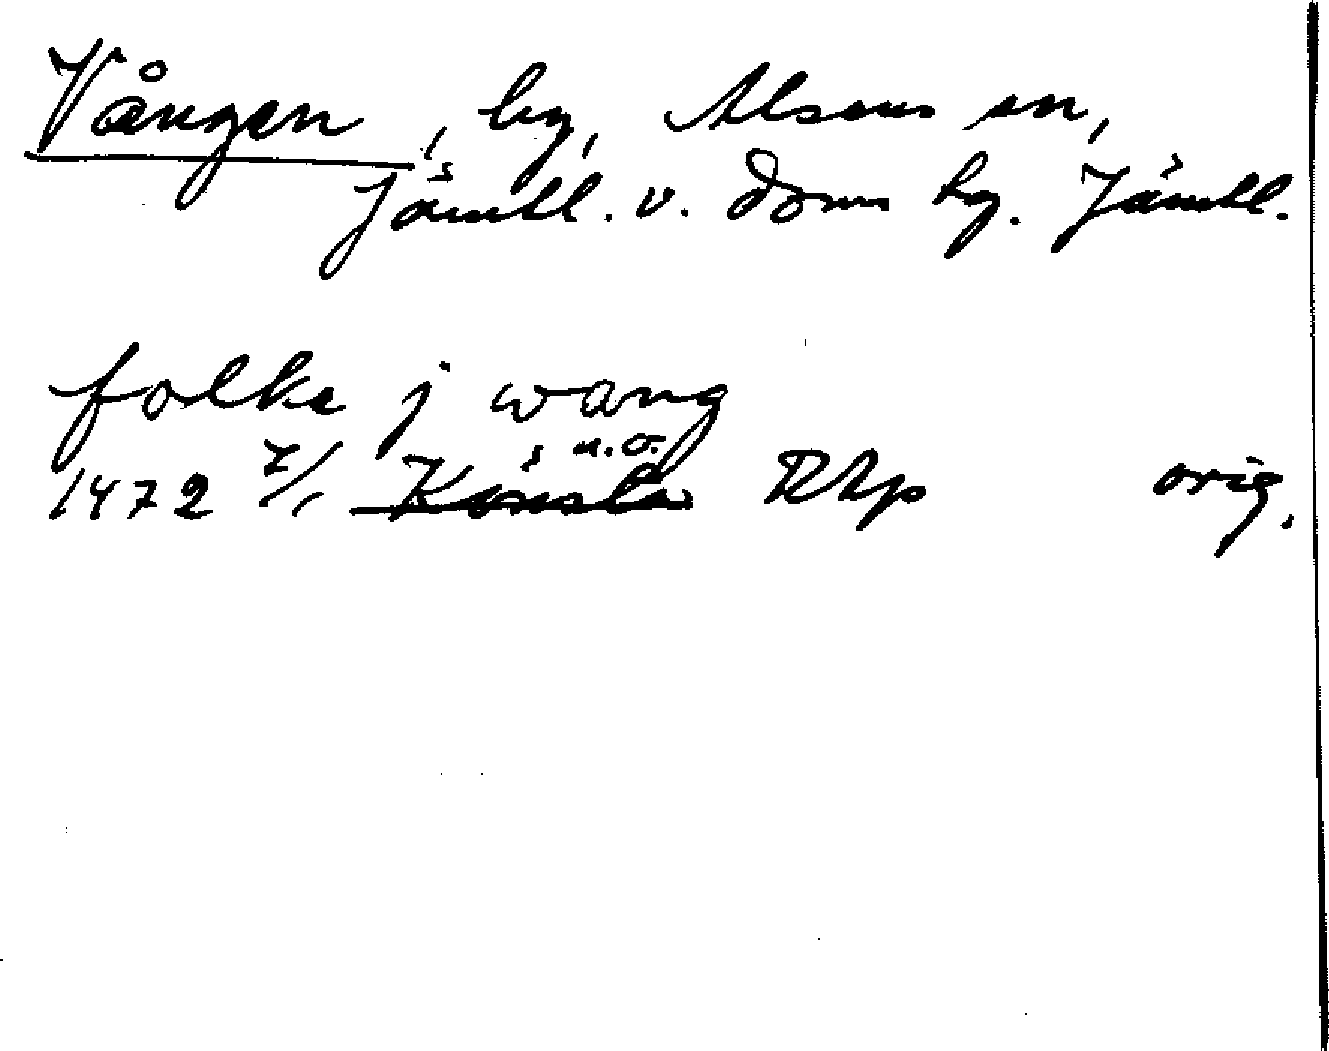 Vången, by, Alsens sn,
Jämtl. v. doms hg. Jämtl.
folke j wang
1472 7/1 u.o. RAp orig.